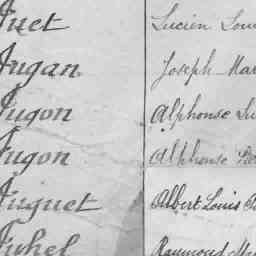 Juet Lucien Loui
Jugan Joseph Mar
Jugon Alphonse
Jugon Alphonse
Juguet Albert Louis
Juhel Raymond